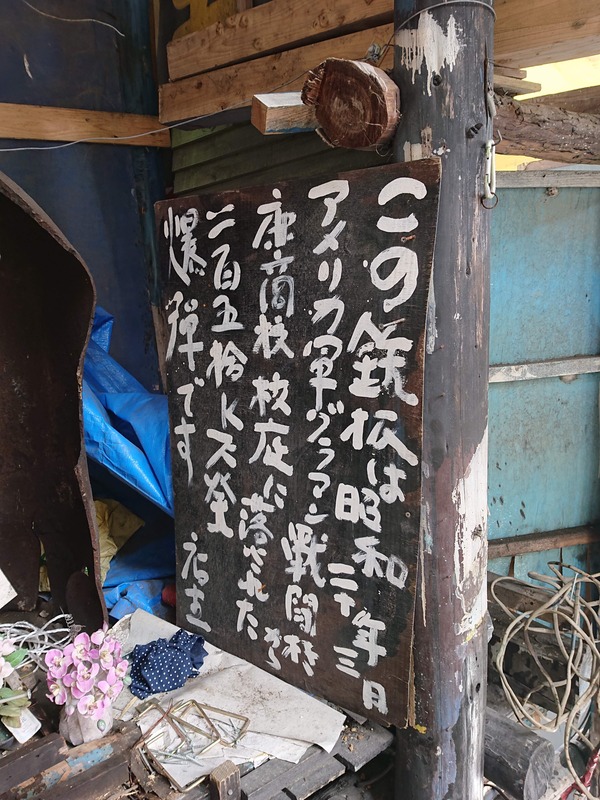 この鉄板は昭和二十年三月
アメリカ軍グラマン戦闘機から
商校校庭に落された
二百五拾K不発
爆弾です 店主